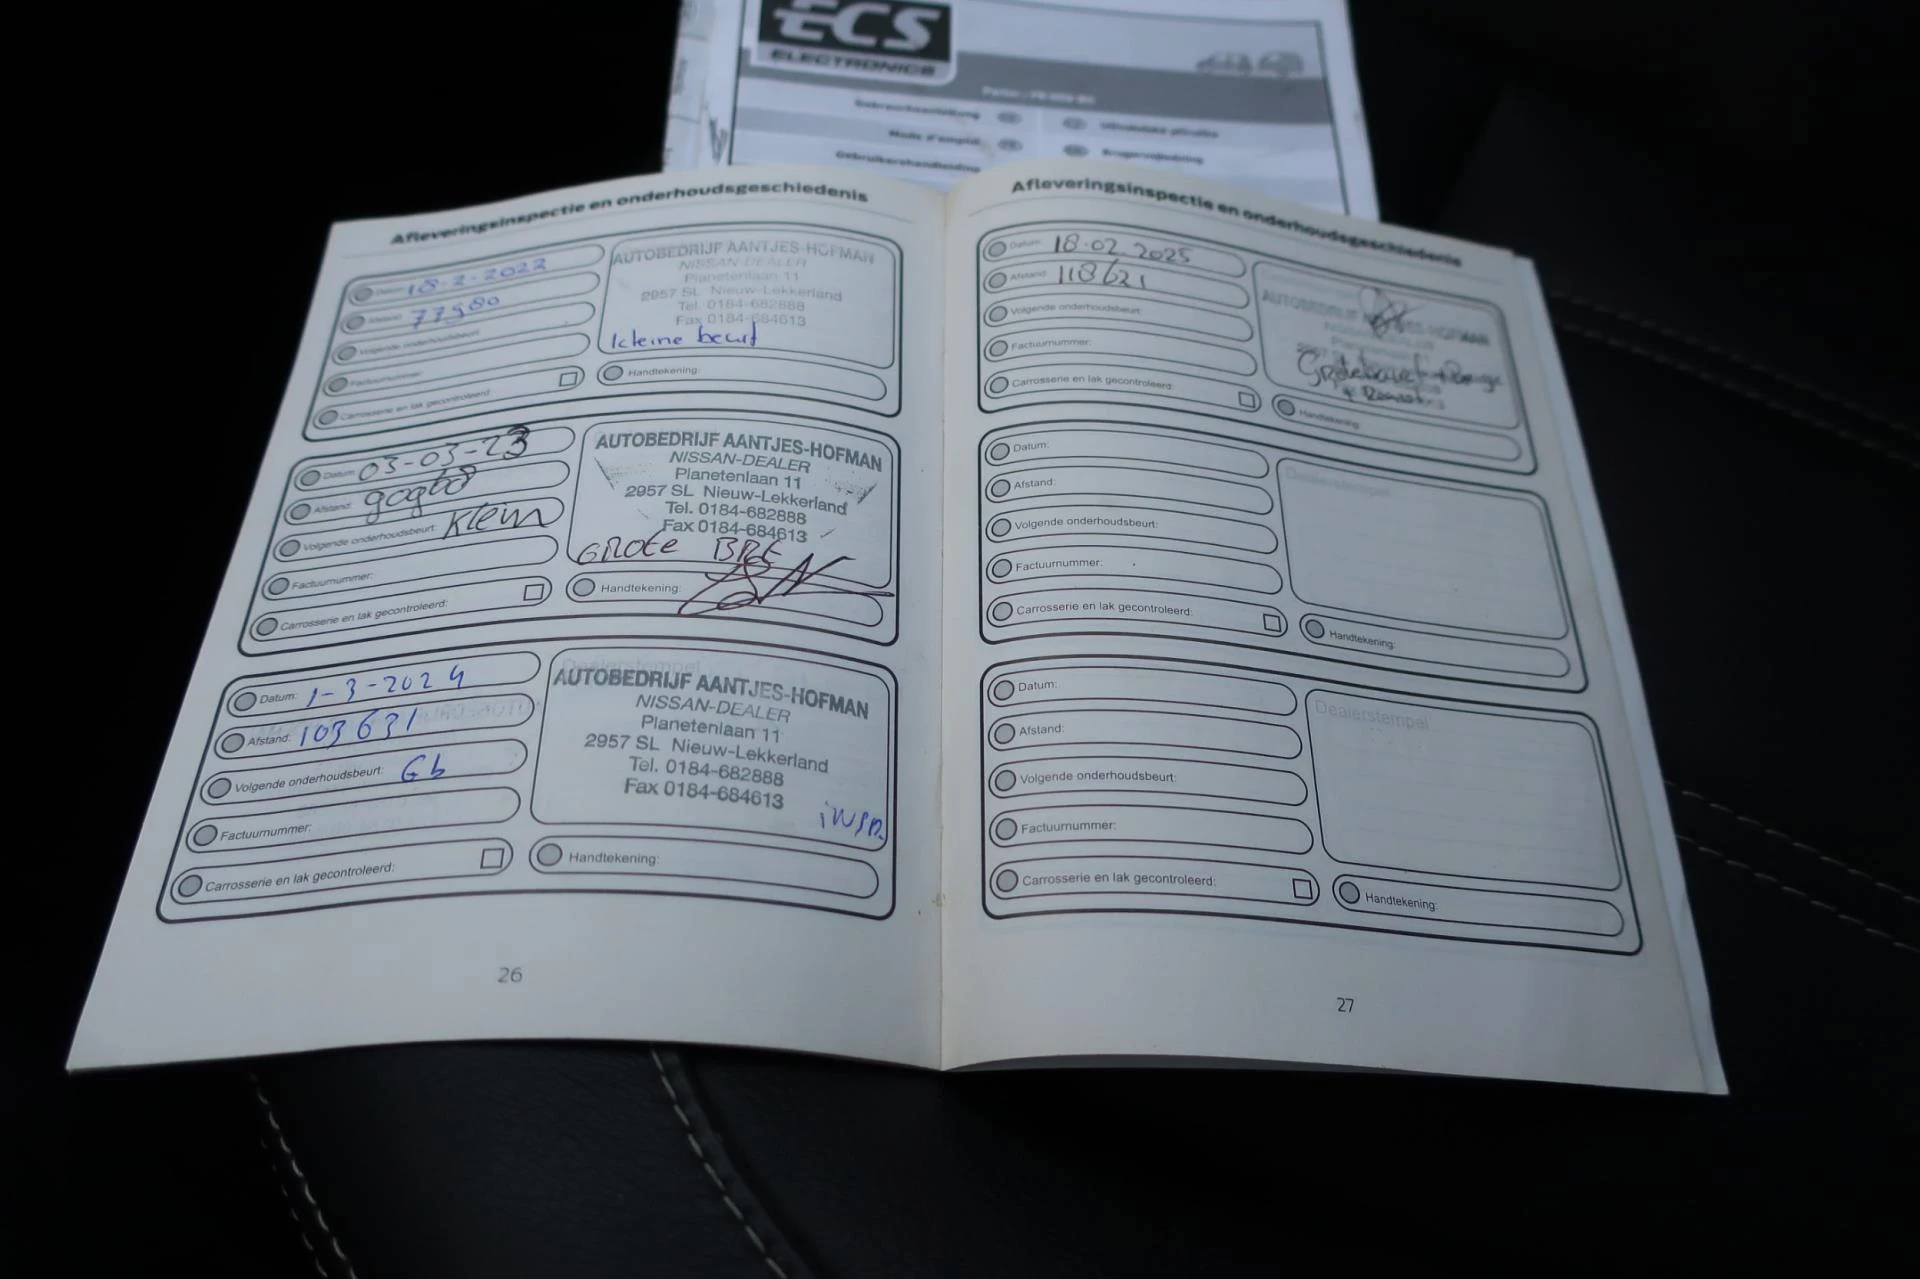 ECS
ELECTRONICS
Gebrauchsanleitung
Mode d'emploi
Gebruikershandleiding
Brugervejledning
Afleveringsinspectie en onderhoudsgeschiedenis
Datum: 18-2-2022
Afstand: 77980
Volgende onderhoudsbeurt:
Factuurnummer:
Carrosserie en lak gecontroleerd:
AUTOBEDRIJF AANTJES-HOFMAN
NISSAN-DEALER
Planetenlaan 11
2957 SL Nieuw-Lekkerland
Tel. 0184-682888
Fax 0184-684613
kleine beurt
Handtekening:
Datum: 03-03-23
Afstand:
Volgende onderhoudsbeurt: Klein
Factuurnummer:
Carrosserie en lak gecontroleerd:
AUTOBEDRIJF AANTJES-HOFMAN
NISSAN-DEALER
Planetenlaan 11
2957 SL Nieuw-Lekkerland
Tel. 0184-682888
Fax 0184-684613
GROTE
Handtekening:
Datum: 1-3-2024
Afstand: 103631
Volgende onderhoudsbeurt: Gb
Factuurnummer:
Carrosserie en lak gecontroleerd:
Dealerstempel
AUTOBEDRIJF AANTJES-HOFMAN
NISSAN-DEALER
Planetenlaan 11
2957 SL Nieuw-Lekkerland
Tel. 0184-682888
Fax 0184-684613
insp.
Handtekening:
26
Afleveringsinspectie en onderhoudsgeschiedenis
Datum: 18.02.2025
Afstand: 118621
Volgende onderhoudsbeurt:
Factuurnummer:
Carrosserie en lak gecontroleerd:
AUTOBEDRIJF AANTJES-HOFMAN
Handtekening:
Datum:
Afstand:
Volgende onderhoudsbeurt:
Factuurnummer:
Carrosserie en lak gecontroleerd:
Dealerstempel
Handtekening:
Datum:
Afstand:
Volgende onderhoudsbeurt:
Factuurnummer:
Carrosserie en lak gecontroleerd:
Dealerstempel
Handtekening:
27